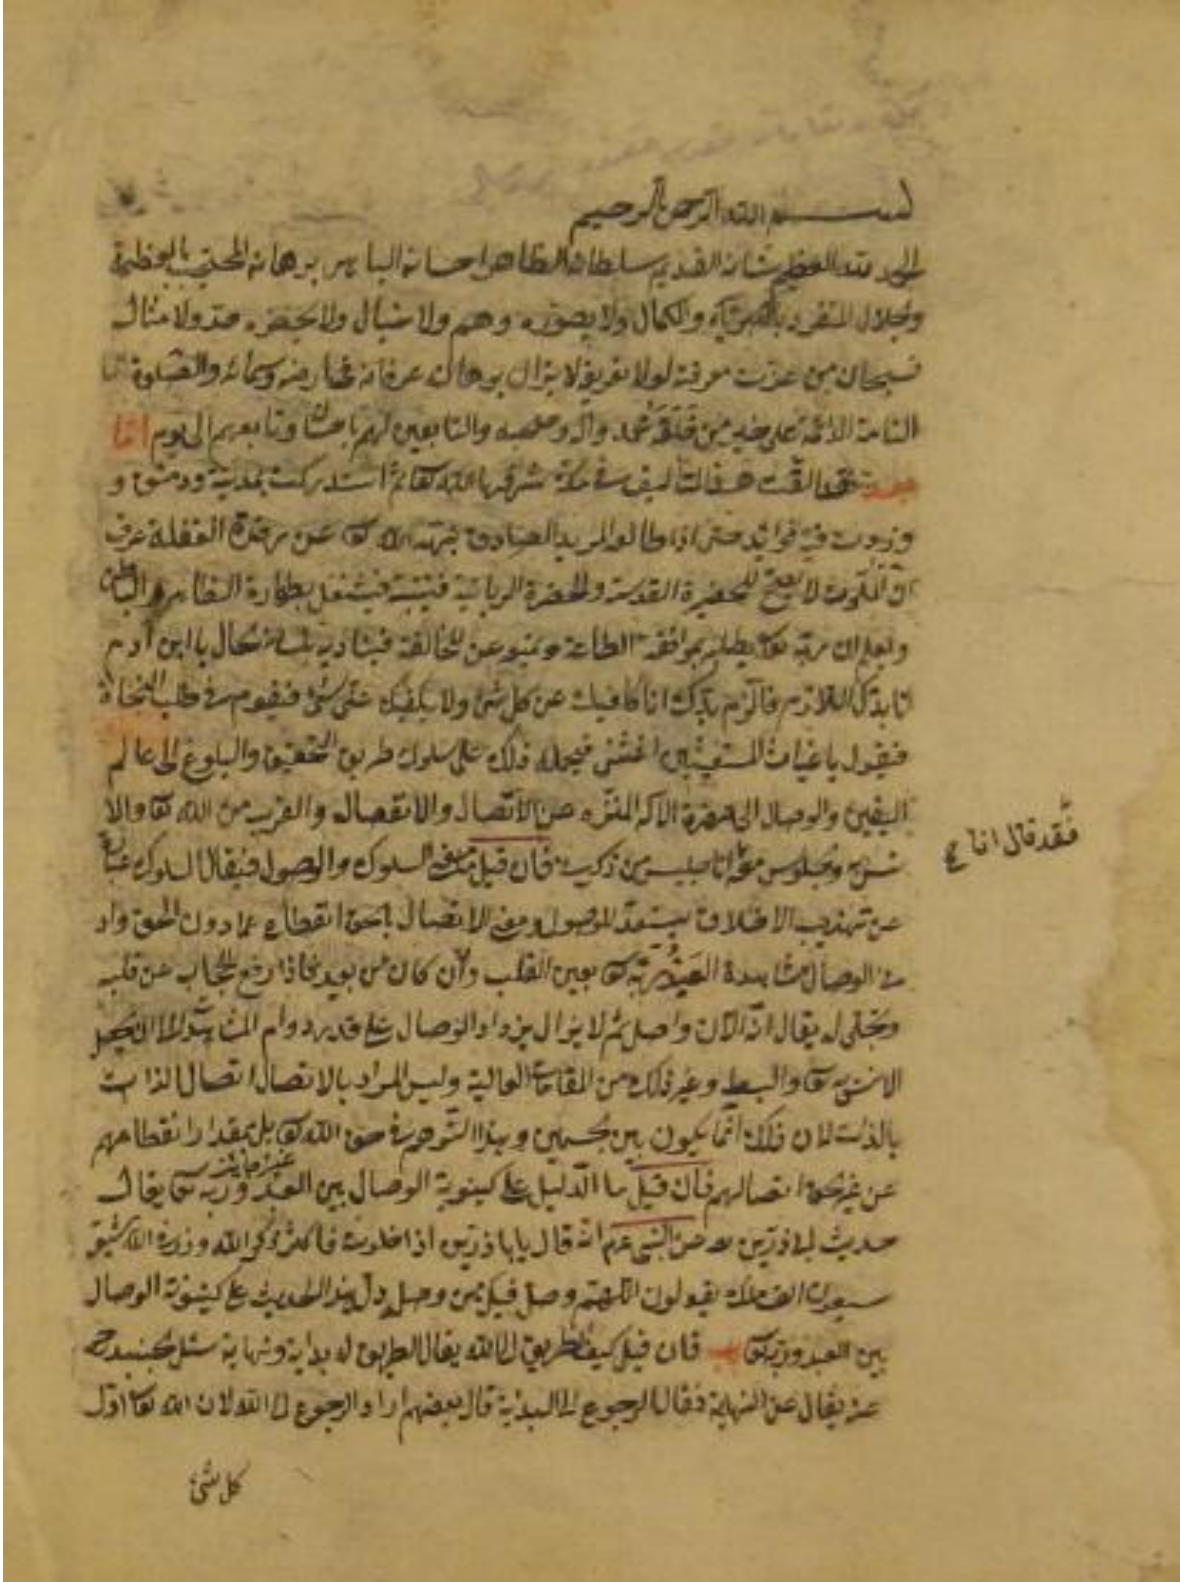 بسم الله الرحمن الرحيم
الحمد لله العظيم شانه القديم سلطانه الظاهر احسانه الباهر برهانه المحتجب بالعظمة
والجلال المتفرد بالكبرياء والكمال ولا يصوره وهم ولا خيال ولا يحصره حد ولا مثال
فسبحان من عزت معرفته لولا تعريفه لا يزال برهان عرفانه في ارضه وسمائه والصلوة
التامة الدائمة على خير من خلقه محمد وآله وصحبه والتابعين لهم باحسان وتابعهم الى يوم اما
بعد فقد الفت هذا التأليف في مكة شرفها الله تعا ثم استدركت بمدينة ودمشق و
وزدت فيه فوائد حتى اذا طالع المريد الصادق نبهه الله تعا عن رقدة الغفلة عرف
ان الملوث لا يصلح للحضيرة القدسية والحضرة الربانية فيتنبه فيشتغل بطهارة الظاهر والباطن
ويعلم ان ربه تعا يطلبه بموافقة الطاعة عن المخالفة فيناديه بلسان الحال يا ابن آدم
انا بدك اللازم فالزم بدك انا كافيك عن كل شئ ولا يكفيك عني شئ فيقوم في طلب النجاة
فيقول يا غياث المستغيثين اغثني فيحمله ذلك على سلوك طريق التحقيق والبلوغ الى عالم
اليقين والوصال الى حضرة الاله المنزه عن الاتصال والانفصال والقرب من الله تعا والا
نس به والجلوس معه انا جليس من ذكرني فان قيل ما معنى السلوك والوصول فيقال السلوك عبارة
فقد قال انا ع
عن تهذيب الاخلاق ليستعد للوصول ومعنى الاتصال بالحق انقطاع عما دون الحق واد
نى الوصال مشاهدة العبد ربه تعا بعين القلب وان كان من بعيد فاذا رفع الحجاب عن قلبه
وتجلى له يقال انه الآن واصل ثم لا يزال يزداد الوصال على قدر دوام المشاهدة الى ان يحصل
الانس به تعا والبسط وغير ذلك من المقامات العالية وليس المراد بالاتصال اتصال الذات
بالذات لان ذلك انما يكون بين جسمين وهذا التوهم في حق الله تعا بل بمقدار انقطاعهم
عن غير الحق اتصالهم فان قيل ما الدليل على كينونية الوصال بين العبد وربه تعا يقال
حديث ابى عن النبي عم انه قال يا اذا خلوت فاكثر ذكر الله وزر في الله شيّع
سبعون الف ملك يقولون اللهم وصل فيك من وصل دل هذا الحديث على كينونة الوصال
بين العبد وربه تعا فان قيل كيف الطريق الى الله يقال الطريق له بداية ونهاية سئل جنيد رح
عن النهاية فقال الرجوع الى البداية قال بعضهم اراد الرجوع الى الله لان الله تعا اول
كل شئ